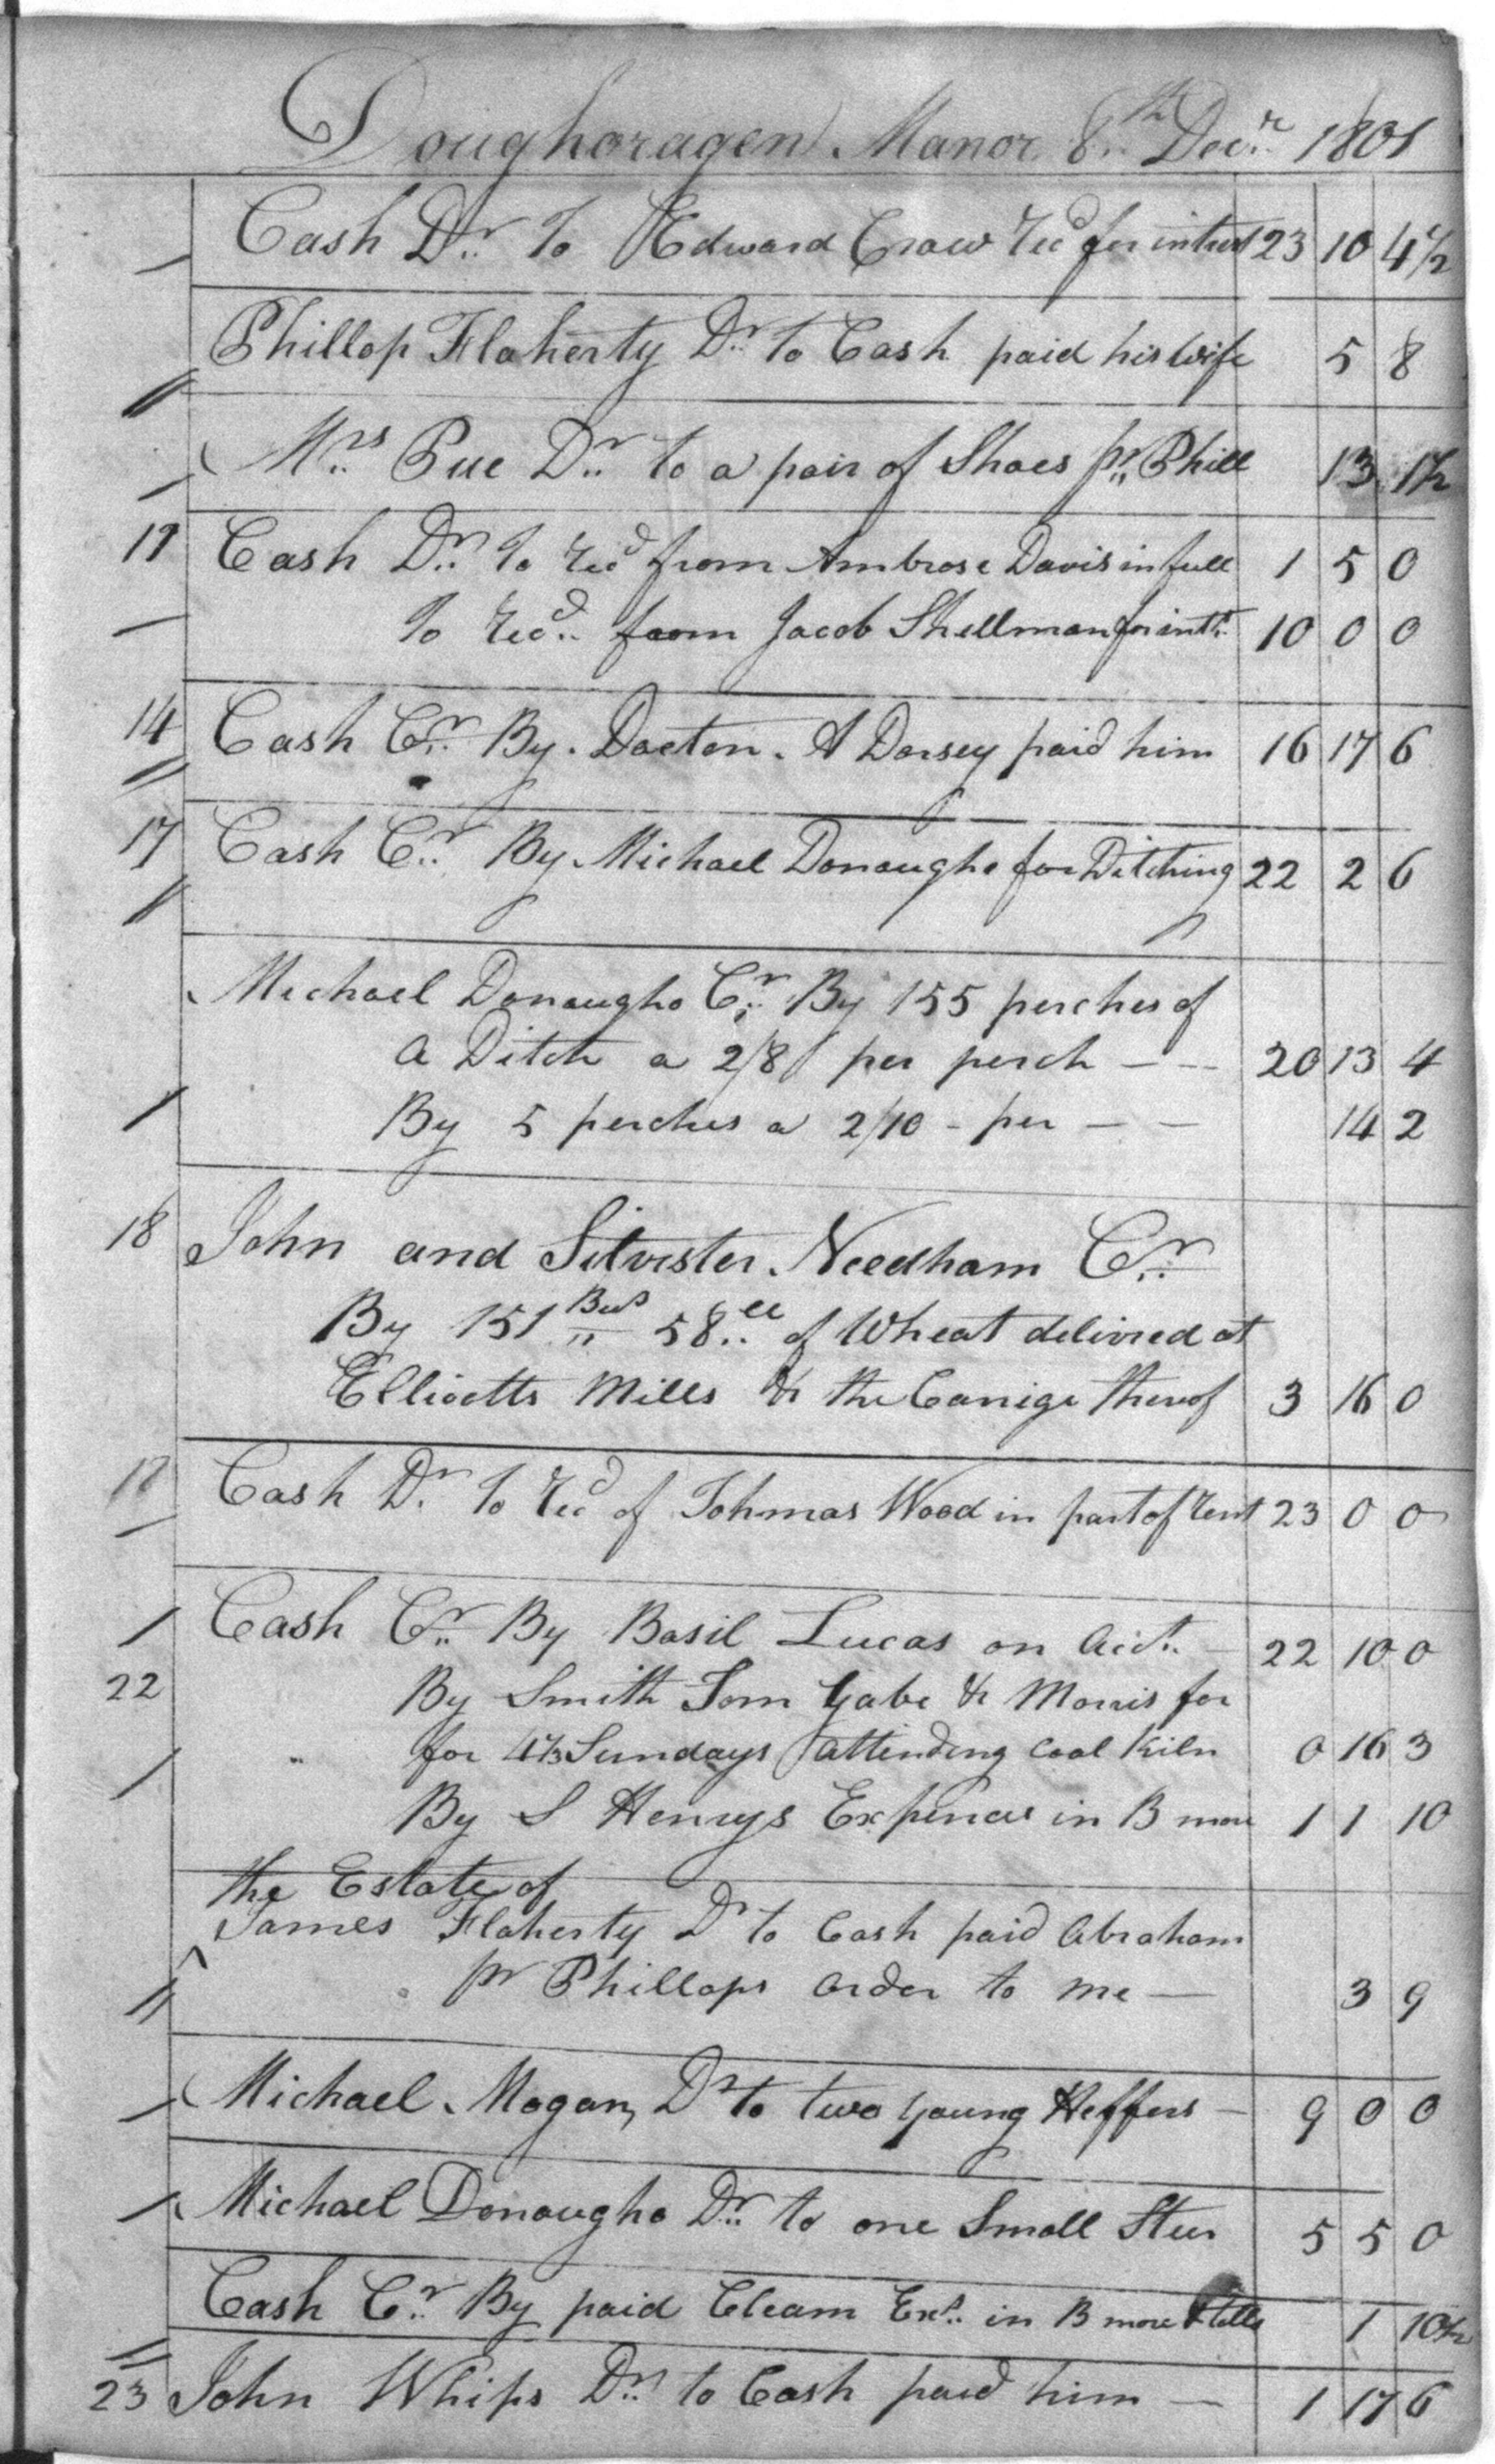 Doughoragen Manor 8th Decr 1801
Cash Dr To Edward Craw recd for intrest 23 10 4 1/2
Phillop Flaherty Dr to Cash paid his wife 5 8
Mrs Pue Dr to a pair of Shoes pr Phill 13 1 1/2
11 Cash Dr To recd from Ambrose Davis in full 1 5 0
To recd from Jacob Shellman for intt 10 0 0
14 Cash Cr By Docton A Dorsey paid him 16 17 6
17 Cash Cr By Michael Donaugho for Ditching 22 2 6
Michael Donaugho Cr By 155 perches of
a Ditch a 2/8 per perch 20 13 4
By 5 perches a 2/10 - per 14 2
18 John and Silvester Needham Cr
By 151 Bus 58 ll of Wheat delivred at
Ellicotts Mills & the Carrige therof 3 16 0
Cash Dr To recd of Tohmas Wood in part of rent 23 0 0
Cash Cr By Basil Lucas on Acct 22 10 0
22 By Smith Tom Gabe & Morris for
for 4 1/3 Sundays attending Coal Kiln 0 16 3
By S Henrys Expences in B more 1 1 10
the Estate of
^ James Flaherty Dr to Cash paid Abraham
pr Phillops order to me 3 9
Michael Mogan Dr to two young Heffers 9 0 0
Michael Donaugho Dr to one Small Steer 5 5 0
Cash Cr By paid Cleam Exs in B more & tolls 1 10 1/2
23 John Whips Dr to Cash paid him 1 17 6